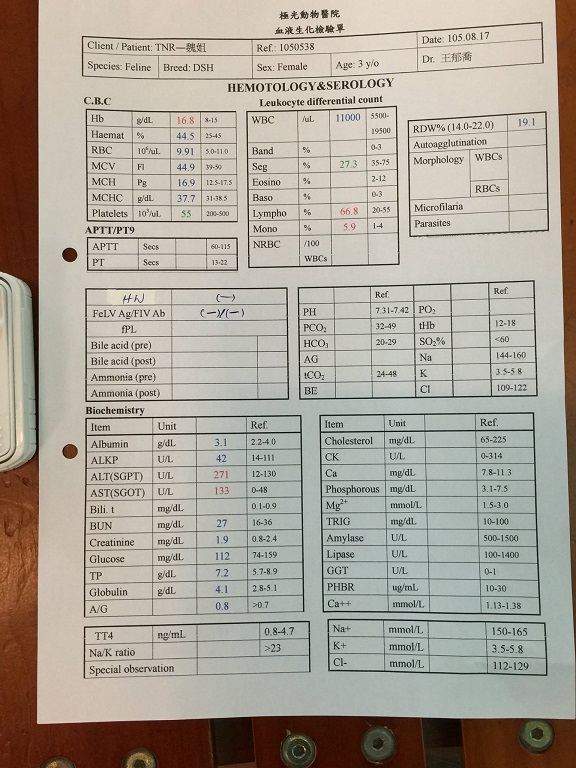 極光動物醫院
血液生化檢驗單
Client / Patient: TNR—魏姐 Ref.: 1050538 Date: 105.08.17
Species: Feline Breed: DSH Sex: Female Age: 3 y/o Dr. 王郁喬
HEMOTOLOGY&SEROLOGY
C.B.C
Hb g/dL 16.8 8-15
Haemat % 44.5 25-45
RBC 10⁶/uL 9.91 5.0-11.0
MCV Fl 44.9 39-50
MCH Pg 16.9 12.5-17.5
MCHC g/dL 37.7 31-38.5
Platelets 10³/uL 55 200-500
APTT/PT9
APTT Secs 60-115
PT Secs 13-22
Leukocyte differential count
WBC /uL 11000 5500-
19500
Band % 0-3
Seg % 27.3 35-75
Eosino % 2-12
Baso % 0-3
Lympho % 66.8 20-55
Mono % 5.9 1-4
NRBC /100
WBCs
RDW% (14.0-22.0) 19.1
Autoagglutination
Morphology WBCs
RBCs
Microfilaria
Parasites
HW (—)
FeLV Ag/FIV Ab (—)/(—)
fPL
Bile acid (pre)
Bile acid (post)
Ammonia (pre)
Ammonia (post)
Ref. Ref.
PH 7.31-7.42 PO₂
PCO₂ 32-49 tHb 12-18
HCO₃ 20-29 SO₂% <60
AG Na 144-160
tCO₂ 24-48 K 3.5-5.8
BE Cl 109-122
Biochemistry
Item Unit Ref.
Albumin g/dL 3.1 2.2-4.0
ALKP U/L 42 14-111
ALT(SGPT) U/L 271 12-130
AST(SGOT) U/L 133 0-48
Bili. t mg/dL 0.1-0.9
BUN mg/dL 27 16-36
Creatinine mg/dL 1.9 0.8-2.4
Glucose mg/dL 112 74-159
TP g/dL 7.2 5.7-8.9
Globulin g/dL 4.1 2.8-5.1
A/G 0.8 >0.7
Item Unit Ref.
Cholesterol mg/dL 65-225
CK U/L 0-314
Ca mg/dL 7.8-11.3
Phosphorous mg/dL 3.1-7.5
Mg²⁺ mmol/L 1.5-3.0
TRIG mg/dL 10-100
Amylase U/L 500-1500
Lipase U/L 100-1400
GGT U/L 0-1
PHBR ug/mL 10-30
Ca++ mmol/L 1.13-1.38
TT4 ng/mL 0.8-4.7
Na/K ratio >23
Special observation
Na+ mmol/L 150-165
K+ mmol/L 3.5-5.8
Cl- mmol/L 112-129